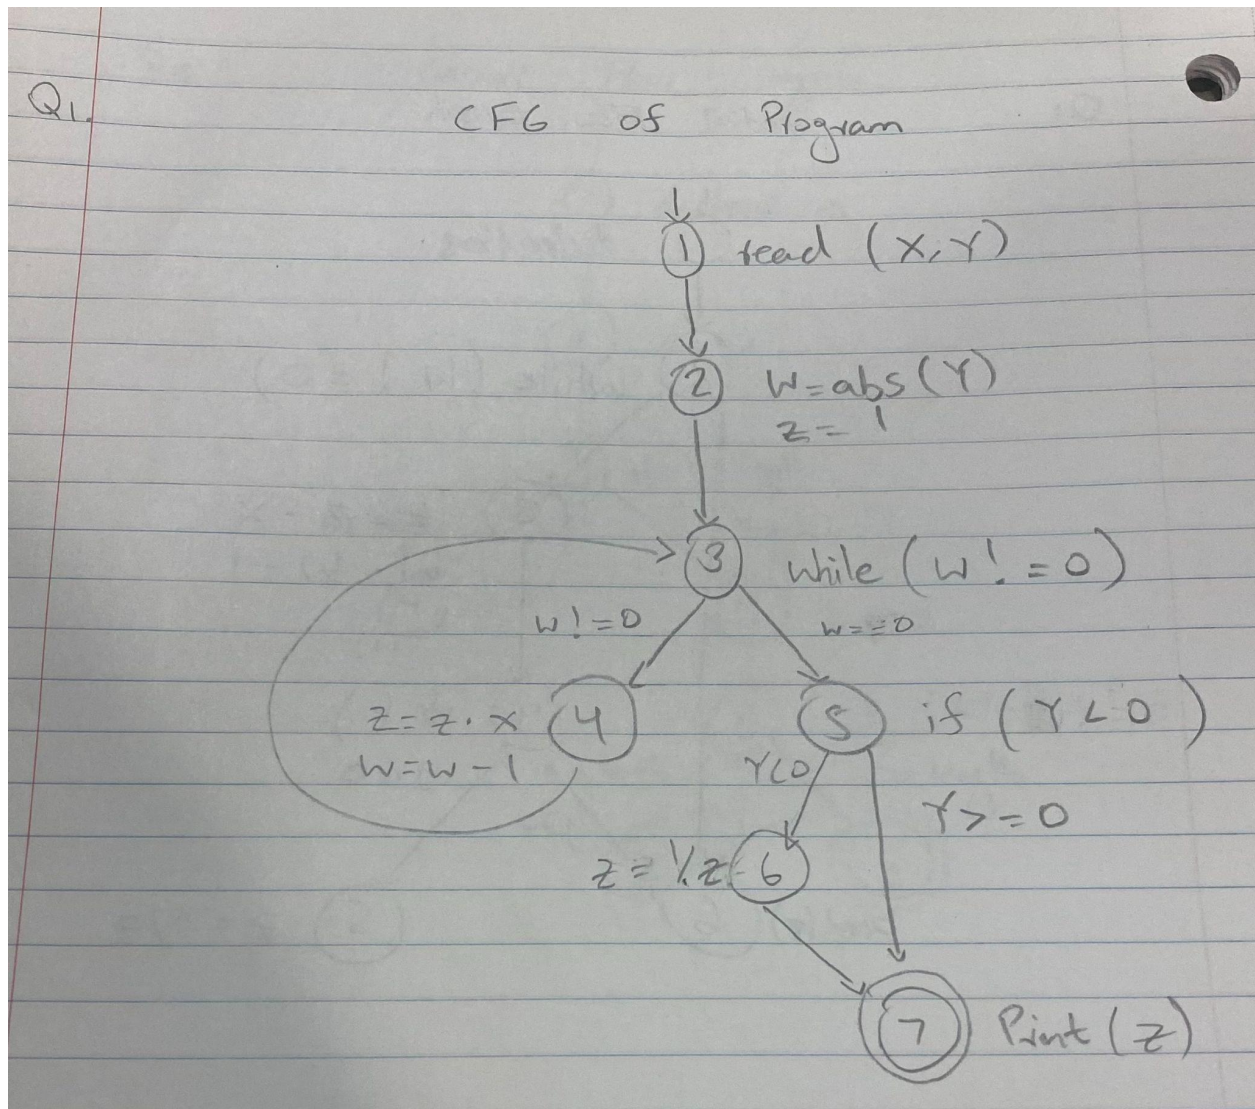 Q1.
CFG of Program
1 read (X,Y)
2 W=abs(Y)
z=1
3 while (W!=0)
w!=0
w==0
z=z.x 4
w=w-1
5 if (Y<0)
Y<0
Y>=0
z=1/z 6
7 Print(z)